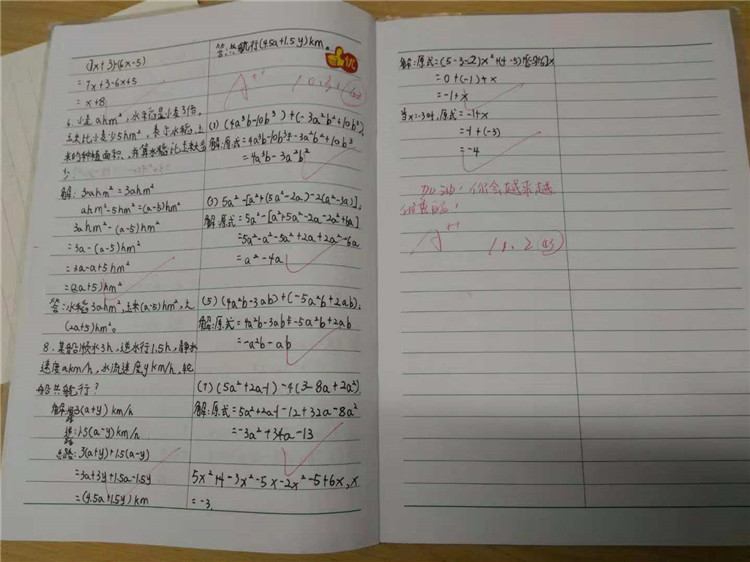 (7x+3)-(6x-5)
=7x+3-6x+5
=x+8
6.小麦ahm²,水稻是小麦3倍,
玉米比小麦少5hm²,表示水稻,玉
米的种植面积,再算水稻比玉米大多
少
解:3×ahm²=3ahm²
ahm²-5hm²=(a-5)hm²
3ahm²-(a-5)hm²
=3a-(a-5)hm²
=3a-a+5hm²
=(2a+5)hm²
答:水稻3ahm²,玉米(a-5)hm²,大
(2a+5)hm²。
8.某船顺水3h,逆水行1.5h,静水
速度akm/h,水流速度ykm/h,轮
船共航行?
解:顺3(a+y)km/h
逆:1.5(a-y)km/h
总路:3(a+y)+1.5(a-y)
=3a+3y+1.5a-1.5y
=(4.5a+1.5y)km
答:共航行(4.5a+1.5y)km。
优
A++
(1)(4a³b-10b³)+(-3a²b²+10b³)
解:原式=4a³b-10b³-3a²b²+10b³
=4a³b-3a²b²
(3)5a²-[a²+(5a²-2a)-2(a²-3a)],
解:原式=5a²-[a²+5a²-2a-2a²+6a]
=5a²-a²-5a²+2a+2a²-6a
=a²-4a
(5)(4a²b-3ab)+(-5a²b+2ab),
解:原式=4a²b-3ab-5a²b+2ab
=-a²b-ab
(7)(5a²+2a-1)-4(3-8a+2a²)
解:原式=5a²+2a-1-12+32a-8a²
=-3a²+34a-13
5x²+4-3x²-5x-2x²-5+6x,x
=-3.
解:原式=(5-3-2)x²+(4-5)
=0+(-1)+x
=-1+x
当x=-3时,原式=-1+x
=-1+(-3)
=-4
加油!你会越来越
优秀的!
A++